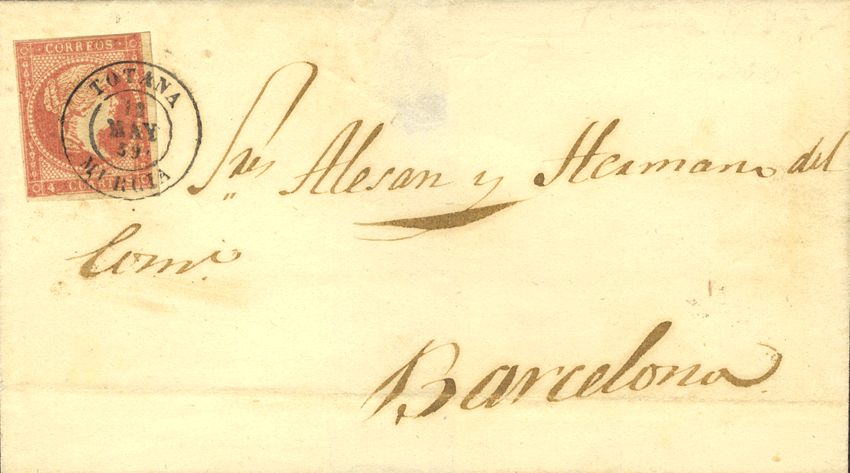 CORREOS
TOTANA
12
MAY
59
MURCIA
4 CUARTOS
Sres Alesan y Hermano del
Come.
Barcelona